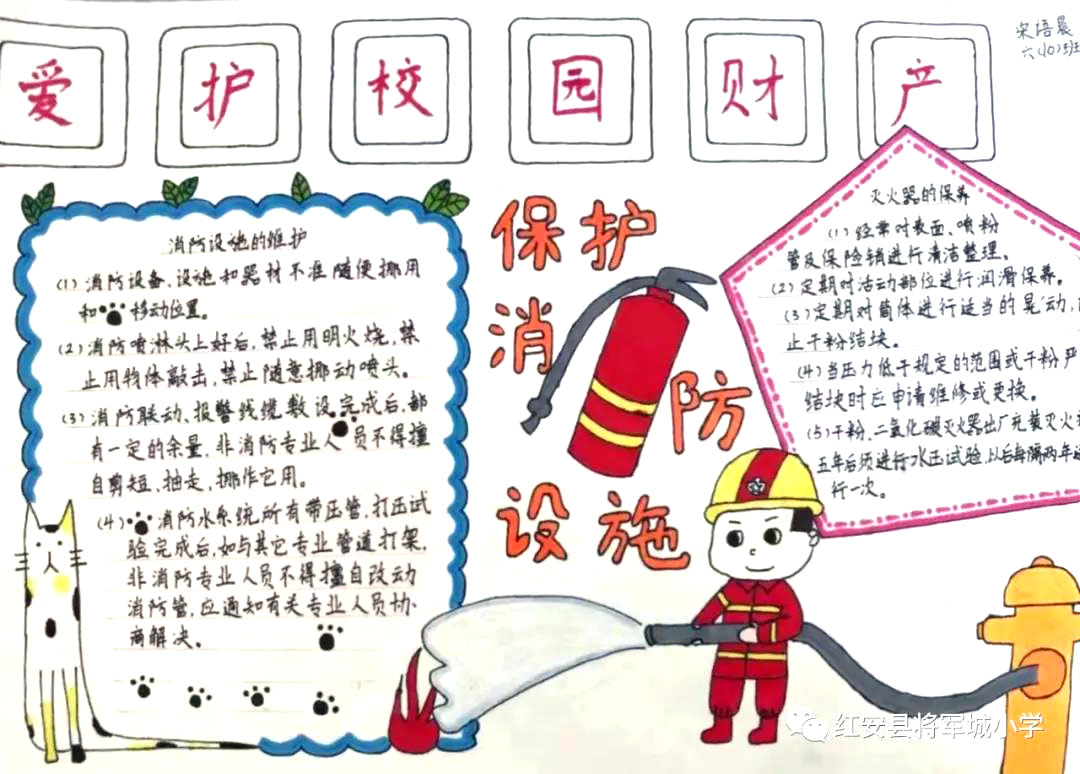 爱护校园财产
宋语晨
六(10)班
消防设施的维护
(1)消防设备、设施和器材不准随便挪用
和移动位置。
(2)消防喷淋头上好后,禁止用明火烧,禁
止用物体敲击,禁止随意挪动喷头。
(3)消防联动、报警线缆敷设完成后,部
有一定的余量,非消防专业人员不得擅
自剪短、抽走,挪作它用。
(4)消防水系统所有带压管,打压试
验完成后,如与其它专业管道打架,
非消防专业人员不得擅自改动
消防管,应通知有关专业人员协
商解决。
保护
消
防
设施
灭火器的保养
(1)经常对表面、喷粉
管及保险销进行清洁整理。
(2)定期对活动部位进行润滑保养。
(3)定期对筒体进行适当的晃动,
止干粉结块。
(4)当压力低于规定的范围或干粉严
结块时应申请维修或更换。
(5)干粉、二氧化碳灭火器出厂充装灭火
五年后须进行水压试验,以后每隔两年
行一次。
红安县将军城小学